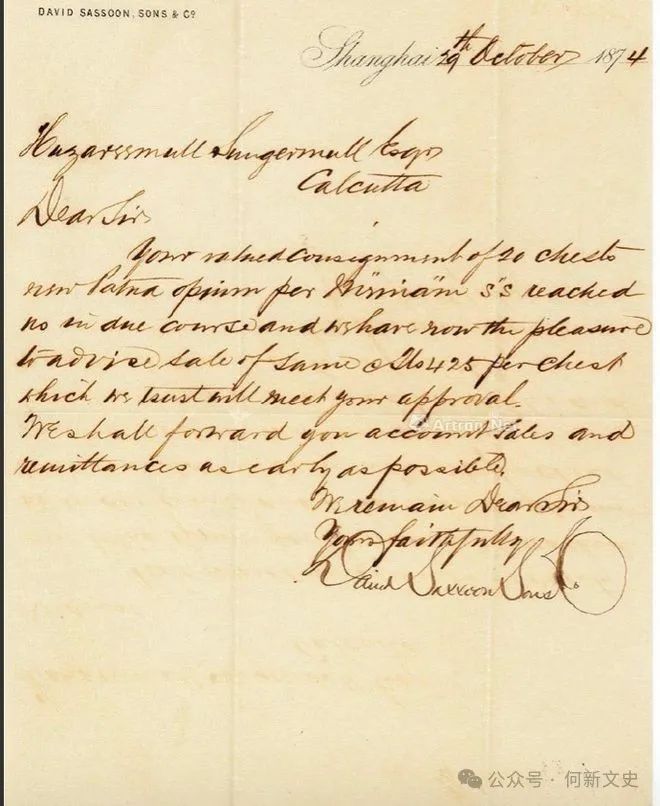 DAVID SASSOON, SONS & Co
Shanghai 29th October 1874
Hazareemull Esqr
Calcutta
Dear Sir
Your valued consignment of 20 chests
new Patna opium per S.S reached
us in due course and we have now the pleasure
to advise sale of same @ Tls 425 per chest
which we trust will meet your approval.
We shall forward you account sales and
remittances as early as possible.
We remain Dear Sir
Yours faithfully
David Sassoon Sons & Co
Artron.Net
公众号·何新文史